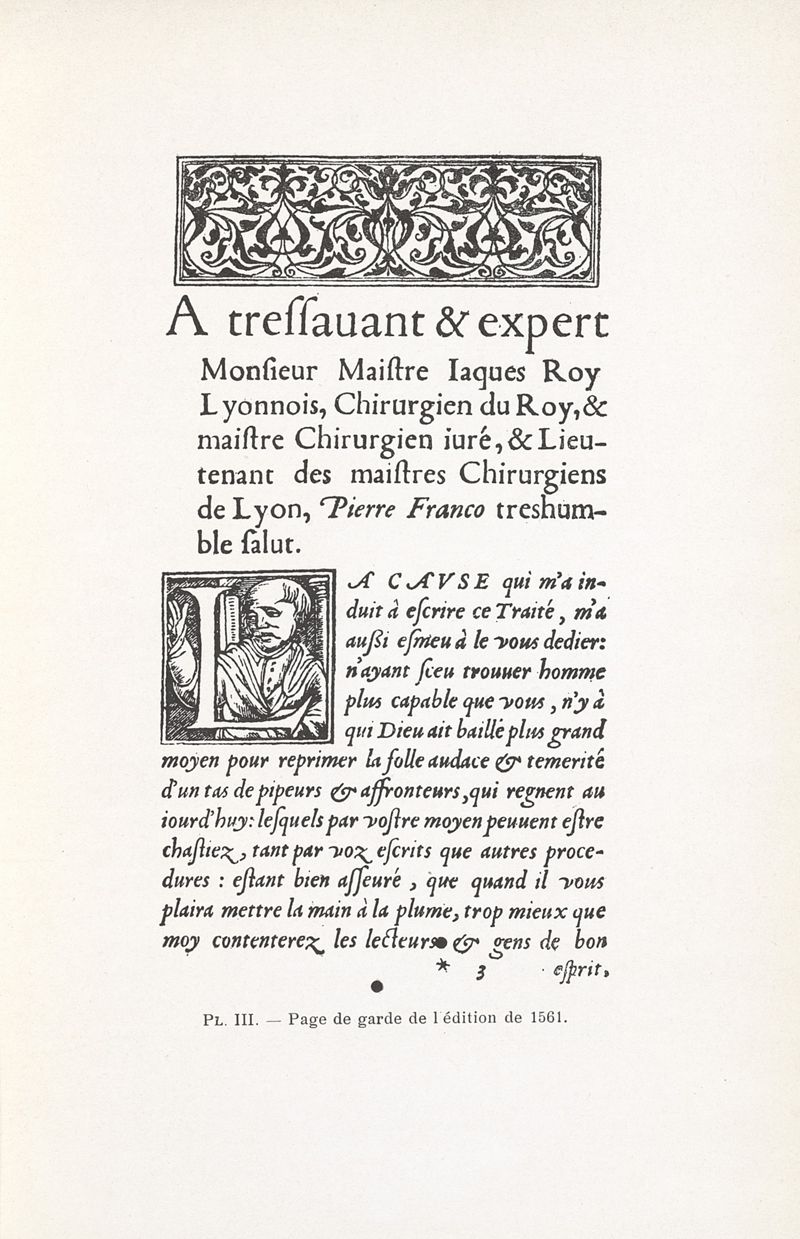 A treſſauant & expert
Monſieur Maiſtre Iaques Roy
Lyonnois, Chirurgien du Roy, &
maiſtre Chirurgien iuré, & Lieu-
tenant des maiſtres Chirurgiens
de Lyon, Pierre Franco treshum-
ble ſalut.
LA CAVSE qui m'a in-
duit à eſcrire ce Traité, m'a
auſſi eſmeu à le vous dedier:
n'ayant ſceu trouuer homme
plus capable que vous, n'y à
qui Dieu ait baillé plus grand
moyen pour reprimer la folle audace & temerité
d'un tas de pipeurs & affronteurs, qui regnent au
iourd'huy: leſquels par voſtre moyen peuuent eſtre
chaſtiez, tant par voz eſcrits que autres proce-
dures : eſtant bien aſſeuré, que quand il vous
plaira mettre la main à la plume, trop mieux que
moy contenterez les lecteurs & gens de bon
* 3 eſprit,
PL. III. — Page de garde de l'édition de 1561.